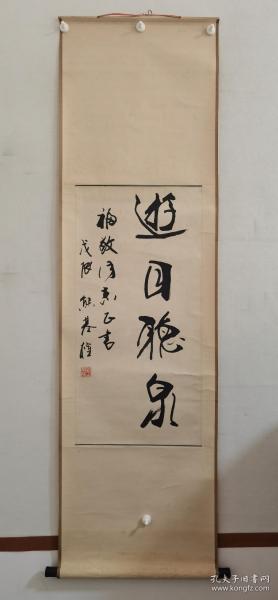 遊目聽泉
福敬同志正書
戊辰 熊基權
孔夫子旧书网
kongfz.com